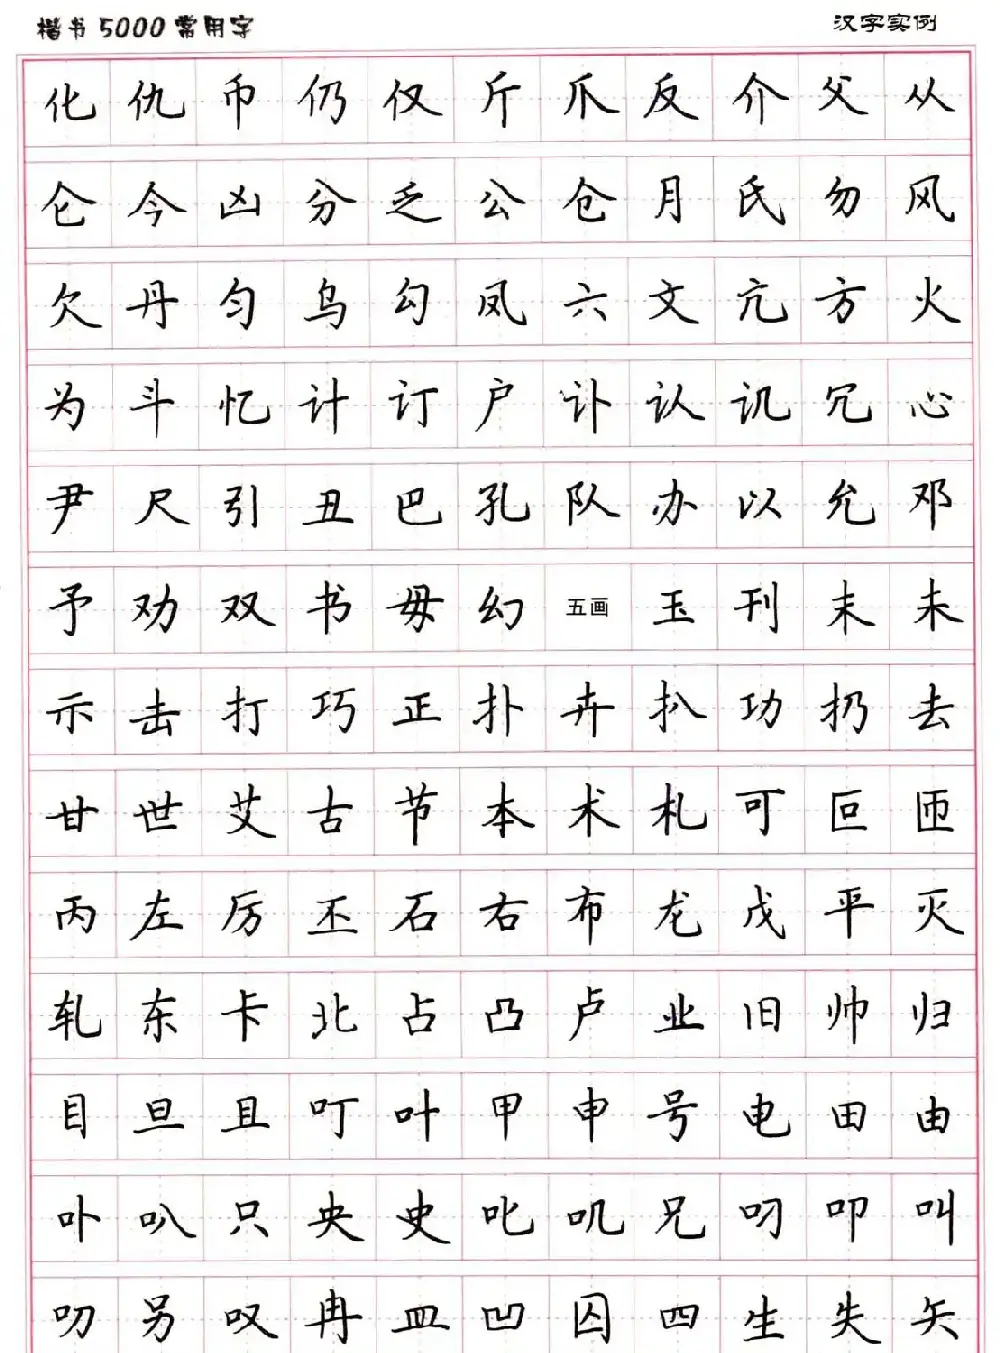 楷书5000常用字 汉字实例
化仇币仍仅斤爪反介父从
仑今凶分乏公仓月氏勿风
欠丹匀乌勾凤六文亢方火
为斗忆计订户讣认讥冗心
尹尺引丑巴孔队办以允邓
予劝双书毋幻五画玉刊末未
示击打巧正扑卉扒功扔去
甘世艾古节本术札可叵匝
丙左厉丕石右布龙戊平灭
轧东卡北占凸卢业旧帅归
目旦且叮叶甲申号电田由
卟叭只央史叱叽兄叼叩叫
叨另叹冉皿凹囚四生失矢